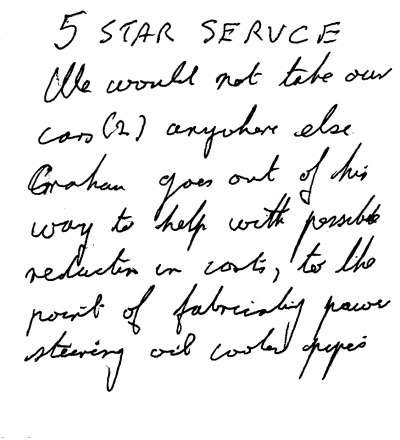 5 STAR SERVCE
We would not take our
cars (2) anywhere else
Graham goes out of his
way to help with possible
reduction in costs, to the
point of fabricating power
steering oil cooler pipes